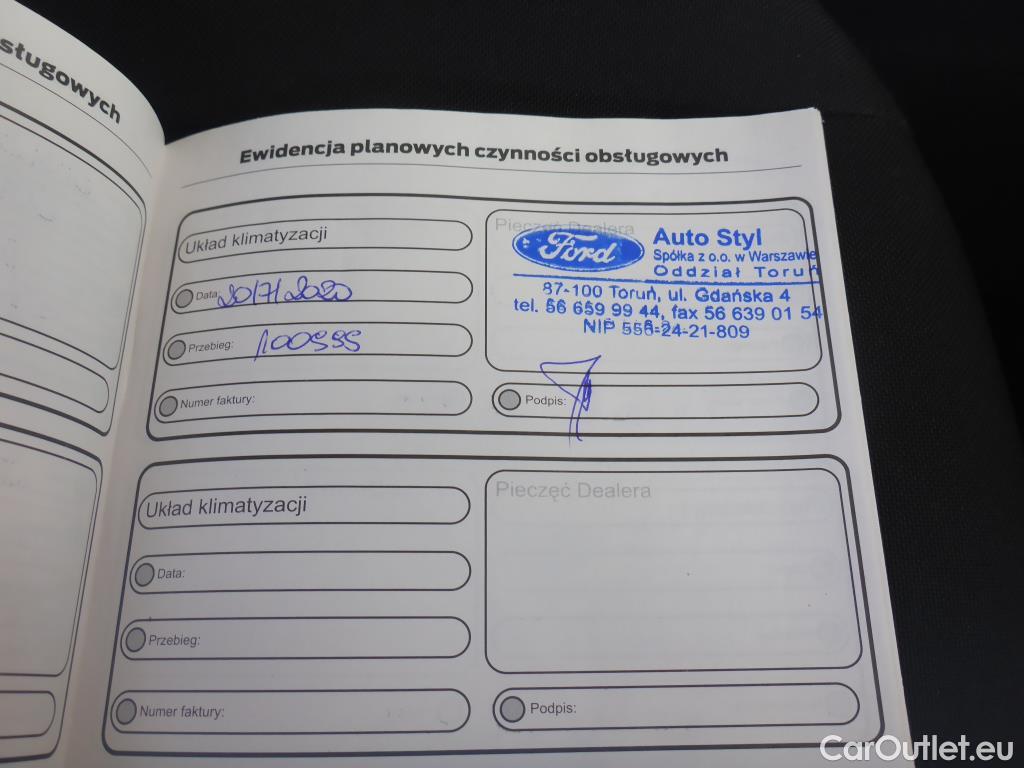 sługowych
Ewidencja planowych czynności obsługowych
Układ klimatyzacji
Data: 20/7/2020
Przebieg: 100555
Numer faktury:
Pieczęć Dealera
Ford
Auto Styl
Spółka z o.o. w Warszawie
Oddział Toruń
87-100 Toruń, ul. Gdańska 4
tel. 56 659 99 44, fax 56 639 01 54
NIP 556-24-21-809
Podpis:
Układ klimatyzacji
Data:
Przebieg:
Numer faktury:
Pieczęć Dealera
Podpis:
CarOutlet.eu